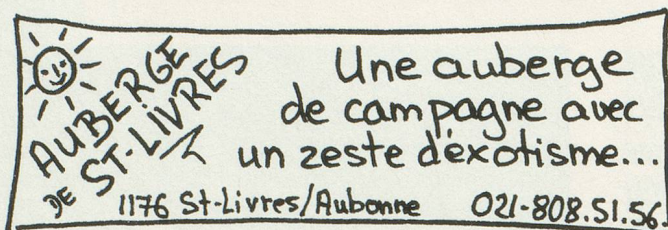 AUBERGE
DE ST-LIVRES
Une auberge
de campagne avec
un zeste d'exotisme...
1176 St-Livres/Aubonne 021-808.51.56